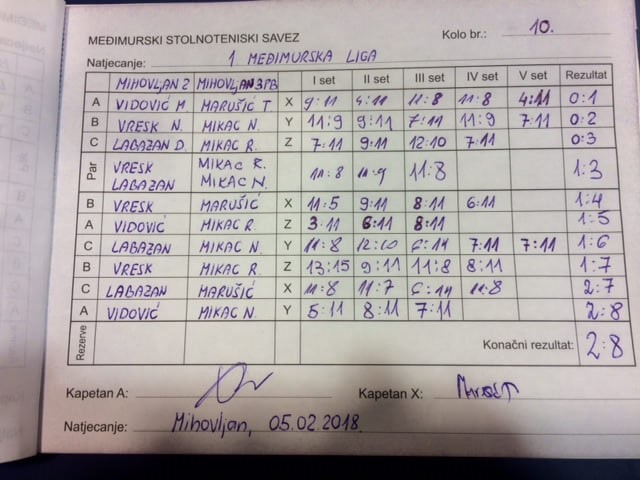 MEĐIMURSKI STOLNOTENISKI SAVEZ Kolo br.: 10.
Natjecanje: 1. MEĐIMURSKA LIGA
MIHOVLJAN 2 MIHOVLJAN 3PB I set II set III set IV set V set Rezultat
A VIDOVIĆ M MARUŠIĆ T X 9:11 4:11 11:8 11:8 4:11 0:1
B VRESK N. MIKAC N. Y 11:9 9:11 7:11 11:9 7:11 0:2
C LABAZAN D. MIKAC R. Z 7:11 9:11 12:10 7:11 0:3
Par VRESK LABAZAN MIKAC R. MIKAC N. 11:8 11:9 11:8 1:3
B VRESK MARUŠIĆ X 11:5 9:11 8:11 6:11 1:4
A VIDOVIĆ MIKAC R. Z 3:11 6:11 8:11 1:5
C LABAZAN MIKAC N. Y 11:8 12:10 6:11 7:11 7:11 1:6
B VRESK MIKAC R. Z 13:15 9:11 11:8 8:11 1:7
C LABAZAN MARUŠIĆ X 11:8 11:7 6:11 11:8 2:7
A VIDOVIĆ MIKAC N. Y 5:11 8:11 7:11 2:8
Rezerve Konačni rezultat: 2:8
Kapetan A: Kapetan X:
Natjecanje: Mihovljan, 05.02.2018.